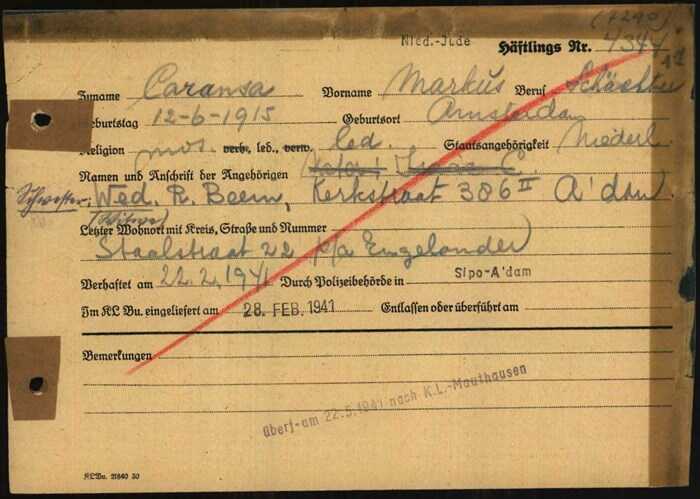 (7290)
Nied.-Jude Häftlings Nr. 4344
Zuname Caransa Vorname Markus Beruf Schächter
Geburtstag 12-6-1915 Geburtsort Amsterdam
Religion mos. verh., led., verw. led. Staatsangehörigkeit Niederl.
Namen und Anschrift der Angehörigen
Schwester: Wed. R. Beem, Kerkstraat 386 II A'dam
(Witwe)
Letzter Wohnort mit Kreis, Straße und Nummer
Staalstraat 22 p/a Engelander
Verhaftet am 22.2.1941 Durch Polizeibehörde in Sipo-A'dam
Im KL Bu. eingeliefert am 28. FEB. 1941 Entlassen oder überführt am
Bemerkungen
überf. am 22.5.1941 nach K.L.-Mauthausen
KLBu.